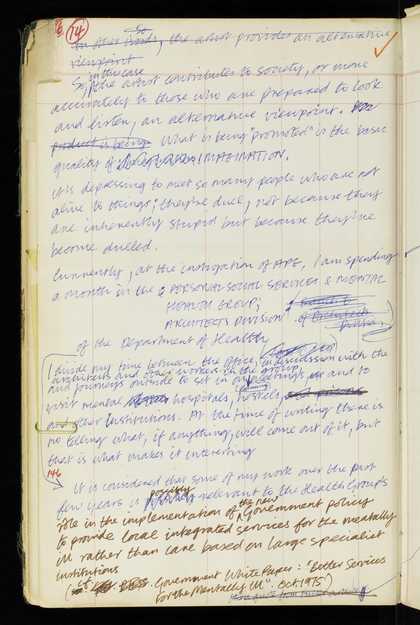 74
So
In other words, the artist provides an alternative
viewpoint
in this case
So, the artist contributes to society, or more
accurately to those who are prepared to look
and listen, an alternative viewpoint.
product is being What is being "promoted" is the basic
quality of IMAGINATION.
it is depressing to meet so many people who are not
alive to things: they're dull, not because they
are inherently stupid but because they've
become dulled.
Currently, at the instigation of APG, I am spending
a month in the PERSONAL SOCIAL SERVICES & MENTAL
HEALTH GROUP,
ARCHITECTS DIVISION
of the Department of Health
I divide my time between the office, in discussion with the
architects and other workers in the group,
and journeys outside to sit in on meetings, and to
visit mental hospitals, hostels,
and other institutions. At the time of writing there is
no telling what, if anything, will come out of it, but
that is what makes it interesting
146
It is considered that some of my work over the past
few years is possibly relevant to the Health Group's
role in the implementation of the new Government policy
to provide local integrated services for the mentally
ill rather than care based on large specialist
institutions
(cf. Government White Paper: "Better Services
for the Mentally Ill". Oct 1975)